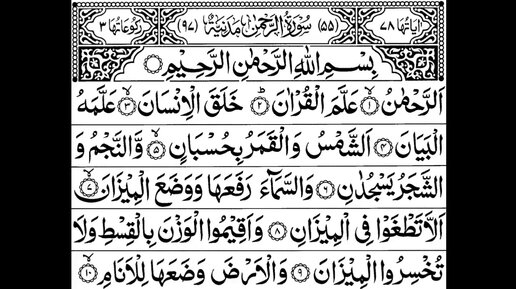 اٰيَاتُهَا ٧٨ (٥٥) سُوْرَةُ الرَّحْمٰنِ مَدَنِيَّةٌ (٩٧) رُكُوْعَاتُهَا ٣
بِسْمِ اللّٰهِ الرَّحْمٰنِ الرَّحِيْمِ
اَلرَّحْمٰنُ ۙ﴿١﴾ عَلَّمَ الْقُرْاٰنَ ؕ﴿٢﴾ خَلَقَ الْاِنْسَانَ ۙ﴿٣﴾ عَلَّمَهُ
الْبَيَانَ ﴿٤﴾ اَلشَّمْسُ وَالْقَمَرُ بِحُسْبَانٍ ۪﴿٥﴾ وَّالنَّجْمُ وَ
الشَّجَرُ يَسْجُدٰنِ ﴿٦﴾ وَالسَّمَآءَ رَفَعَهَا وَوَضَعَ الْمِيْزَانَ ۙ﴿٧﴾
اَلَّا تَطْغَوْا فِى الْمِيْزَانِ ﴿٨﴾ وَاَقِيْمُوا الْوَزْنَ بِالْقِسْطِ وَلَا
تُخْسِرُوا الْمِيْزَانَ ﴿٩﴾ وَالْاَرْضَ وَضَعَهَا لِلْاَنَامِ ۙ﴿١٠﴾